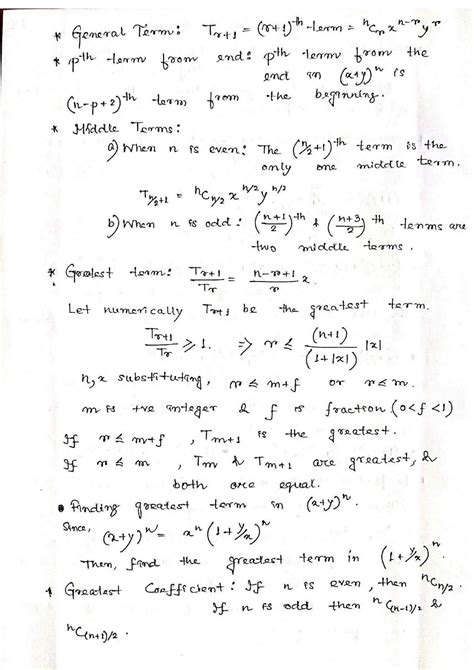 * General Term: T_{r+1} = (r+1)^{th} term = ^nC_r x^{n-r} y^r
* p^{th} term from end: p^{th} term from the
end in (x+y)^n is
(n-p+2)^{th} term from the beginning.
* Middle Terms:
a) When n is even: The (n/2+1)^{th} term is the
only one middle term.
T_{n/2+1} = ^nC_{n/2} x^{n/2} y^{n/2}
b) When n is odd: ((n+1)/2)^{th} & ((n+3)/2)^{th} terms are
two middle terms.
* Greatest term: T_{r+1}/T_r = (n-r+1)/r x.
Let numerically T_{r+1} be the greatest term.
T_{r+1}/T_r ⩾ 1. ⇒ r ≤ (n+1)/(1+|x|) |x|
n, x substituting, r ≤ m+f or r ≤ m.
m is +ve integer & f is fraction (0<f<1)
If r ≤ m+f, T_{m+1} is the greatest.
If r ≤ m, T_m & T_{m+1} are greatest, &
both are equal.
• Finding greatest term in (x+y)^n.
Since, (x+y)^n = x^n (1+y/x)^n
Then, find the greatest term in (1+y/x)^n
* Greatest Coefficient: If n is even, then ^nC_{n/2}.
If n is odd then ^nC_{(n-1)/2} &
^nC_{(n+1)/2}.